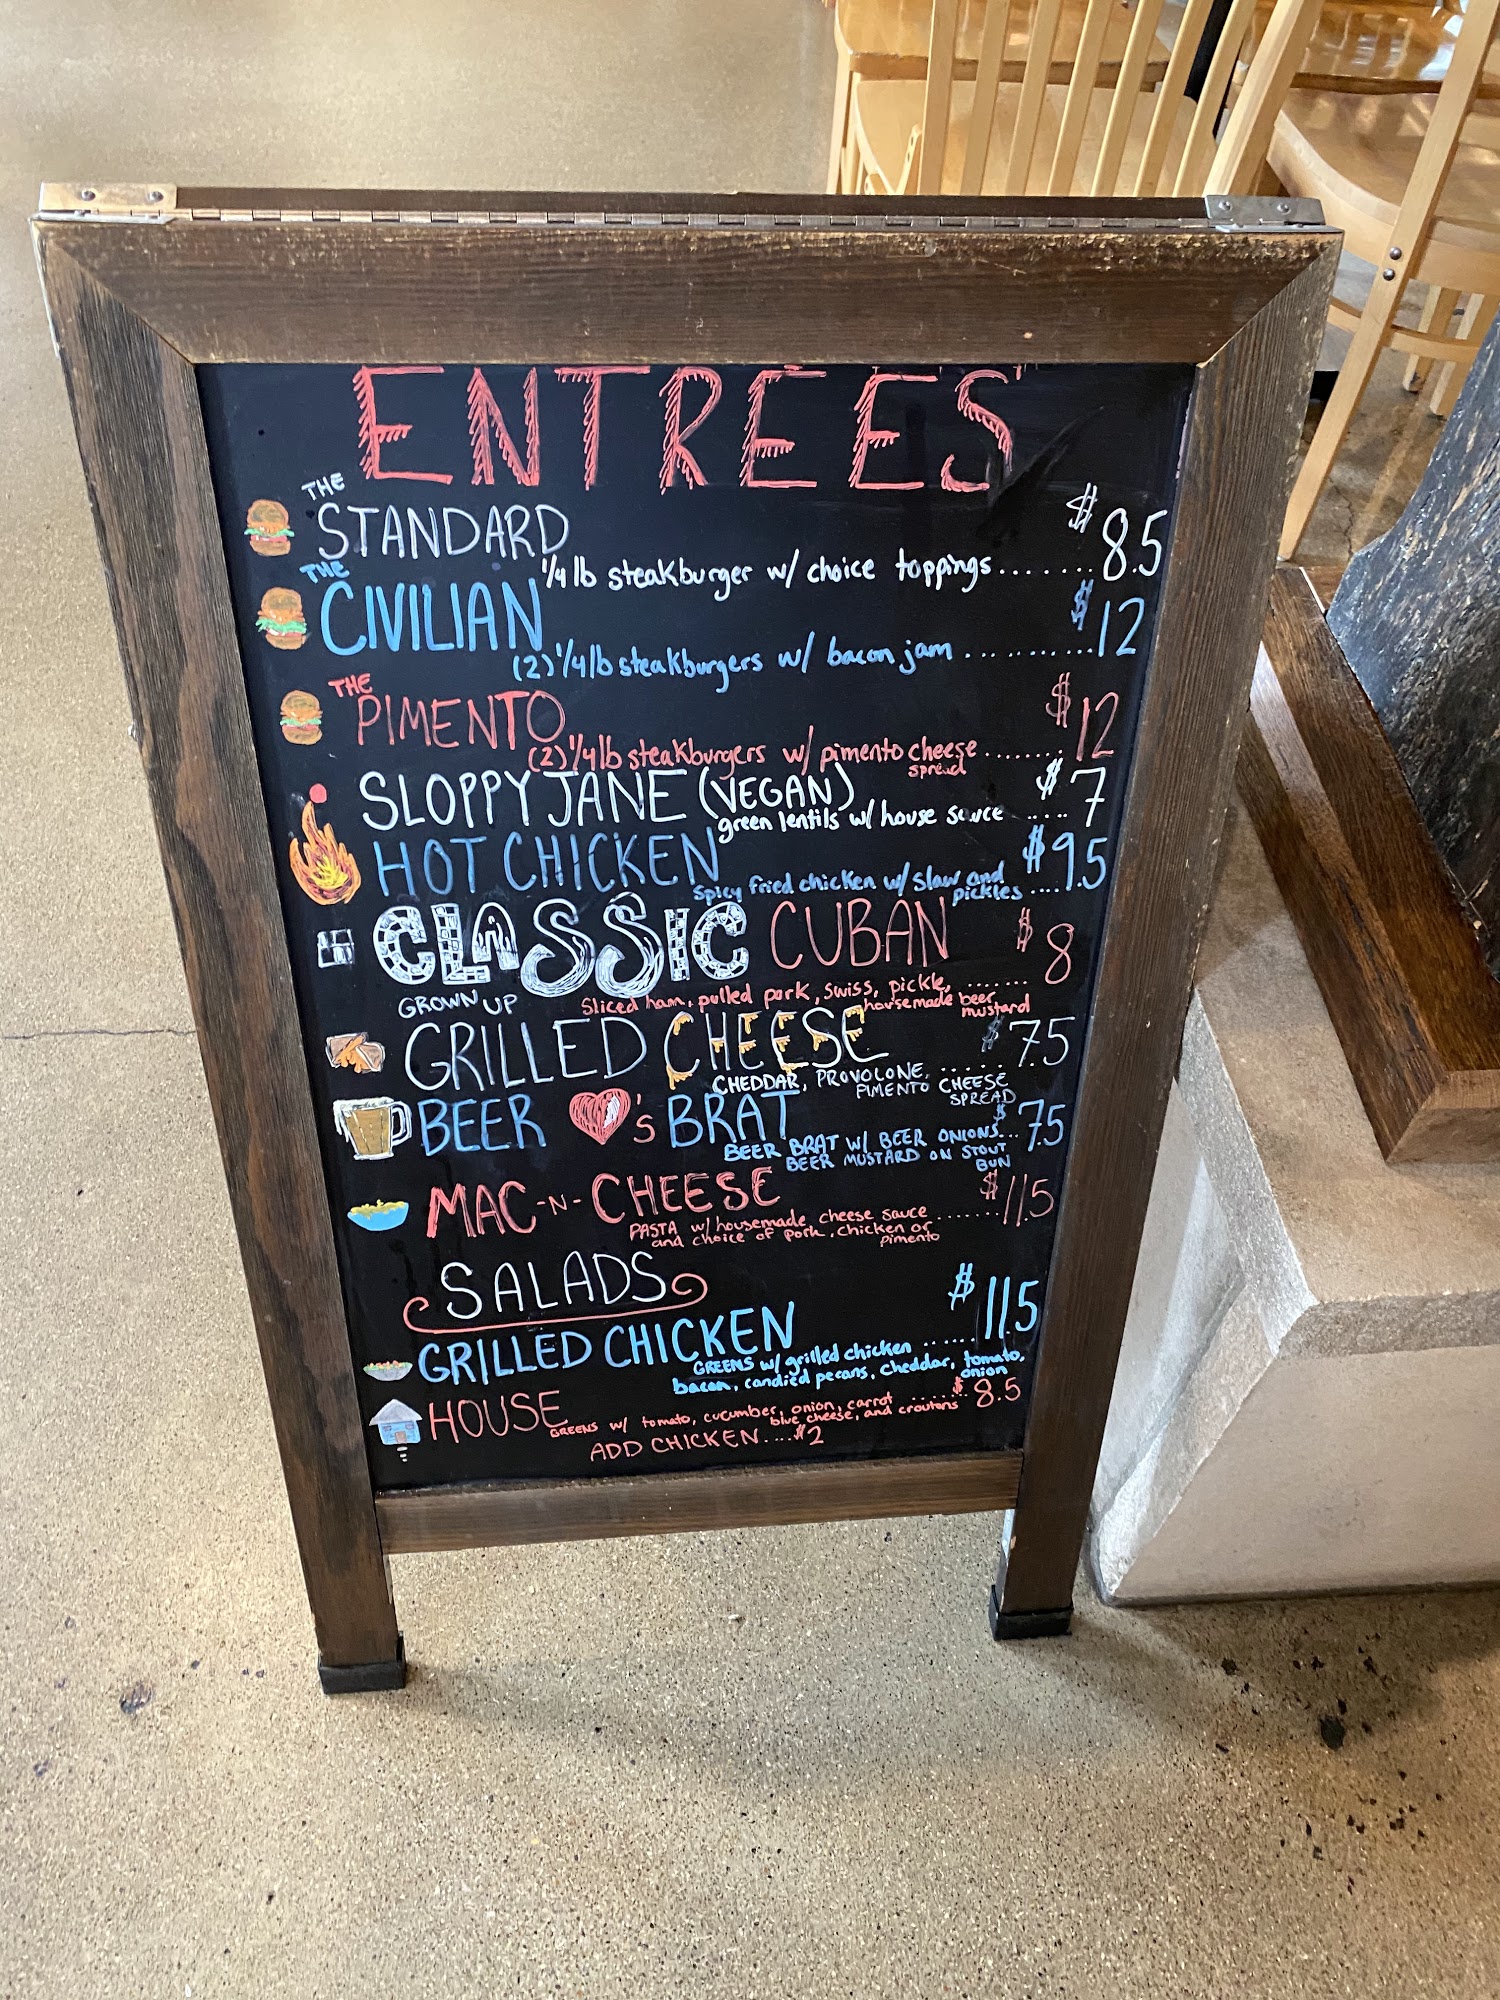 ENTREES
THE
STANDARD $8.5
1/4 lb steakburger w/ choice toppings.......
THE
CIVILIAN $12
(2) 1/4 lb steakburgers w/ bacon jam ...........
THE
PIMENTO $12
(2) 1/4 lb steakburgers w/ pimento cheese.......
spread
SLOPPY JANE (VEGAN) $7
green lentils w/ house sauce .....
HOT CHICKEN $9.5
Spicy fried chicken w/ slaw and
pickles ....
CLASSIC CUBAN $8
Sliced ham, pulled pork, swiss, pickle, .......
housemade beer
mustard
GROWN UP
GRILLED CHEESE $7.5
CHEDDAR, PROVOLONE, ......
PIMENTO CHEESE
SPREAD
BEER ♥'s BRAT $7.5
BEER BRAT W/ BEER ONIONS...
BEER MUSTARD ON STOUT
BUN
MAC-N-CHEESE $11.5
PASTA w/ housemade cheese sauce .......
and choice of pork, chicken or
pimento
SALADS
GRILLED CHICKEN $11.5
GREENS w/ grilled chicken ......
bacon, candied pecans, cheddar, tomato,
onion
HOUSE $8.5
GREENS w/ tomato, cucumber, onion, carrot .......
blue cheese, and croutons
ADD CHICKEN....$2